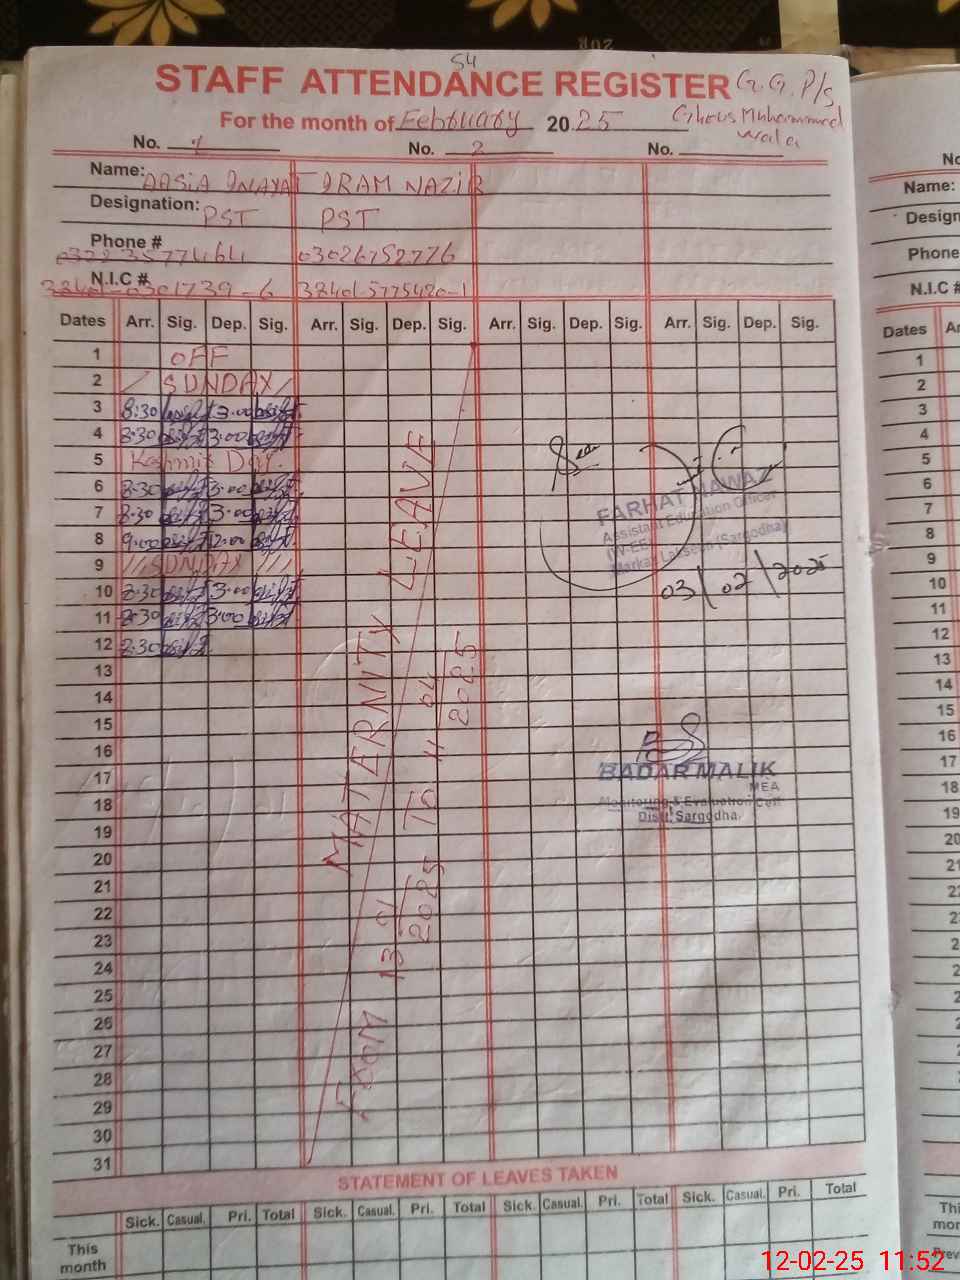 54
STAFF ATTENDANCE REGISTER G.G.P/S
For the month of February 2025 Ghous Muhammad wala
No. 1 No. 2 No.
Name: AASIA INAYAT IRAM NAZIR
Designation: PST PST
Phone # 03026752776
N.I.C # 38401-0301739-6 38401-5775420-1
Dates Arr. Sig. Dep. Sig. Arr. Sig. Dep. Sig. Arr. Sig. Dep. Sig. Arr. Sig. Dep. Sig.
1 OFF
2 SUNDAY
3 8:30 3:00
4 8:30 3:00
5 Kashmir Day.
6 8:30 3:00
7 8:30 3:00
8 9:00 12:00
9 SUNDAY
10 8:30 3:00
11 8:30 3:00
12 8:30
13
14
15
16
17
18
19
20
21
22
23
24
25
26
27
28
29
30
31
MATERNITY LEAVE
From 13 01 2025 To 11 04 2025
FARHAT NAWAZ
Assistant Education Officer
(W-EE)
Markaz Lakseen (Sargodha)
03/02/2025
BADAR MALIK
MEA
Monitoring & Evaluation Cell
Distt. Sargodha.
STATEMENT OF LEAVES TAKEN
Sick. Casual. Pri. Total Sick. Casual. Pri. Total Sick. Casual. Pri. Total Sick. Casual. Pri. Total
This month
No
Name:
Design
Phone
N.I.C #
Dates Ar
1
2
3
4
5
6
7
8
9
10
11
12
13
14
15
16
17
18
19
20
21
22
23
24
25
26
27
28
29
30
31
Thi
mor
Prev
12-02-25 11:52